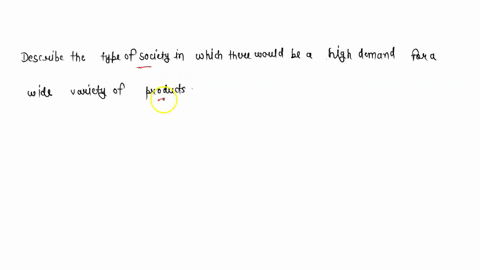 Describe the type of society in which there would be a high demand for a
wide variety of products.